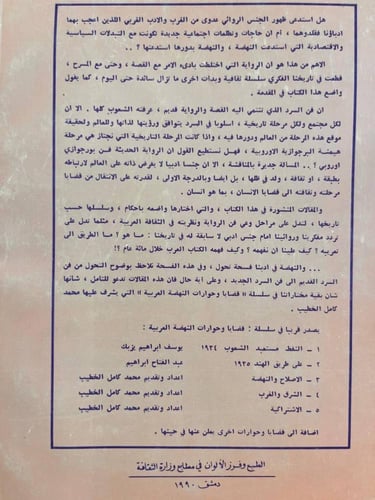 هل استدعى ظهور الجنس الروائي عدوى من الغرب والادب الغربي اللذين اعجب بهما
ادباؤنا فقلدوهما ، أم ان حاجات وتطلعات اجتماعية جديدة تكونت مع التبدلات السياسية
والاقتصادية التي استدعت النهضة ، والنهضة بدورها استدعتها ؟ ..
الاهم من هذا هو ان الرواية التي اختلطت بادىء الامر مع القصة ، وحتى مع المسرح ،
قطعت في تاريخنا الفكري سلسلة ثقافية وبدات اخرى ما تزال سائدة حتى اليوم ، كما يقول
واضع هذا الكتاب في المقدمة .
ان فن السرد الذي تنتمي اليه القصة والرواية قديم ، عرفته الشعوب كلها . الا ان
لكل مجتمع ولكل مرحلة تاريخية ، اسلوبا في السرد يتوافق ورؤيتها لذاتها وللعالم ولحقيقة
موقع هذه المرحلة من العالم ودورها فيه ، واذا كانت المرحلة التاريخية التي نجتاز هي مرحلة
هيمنة البرجوازية الاوروبية ، فهل نستطيع القول ان الرواية الحديثة فن بورجوازي
اوروبي ؟ .. المسالة جديرة بالمناقشة ، الا ان جنسا ادبيا لا يفرض ذاته على العالم لارتباطه
بطبقة ، او ثقافة ، ولد في ظلها ، بل ايضا وبالدرجة الاولى ، لقدرته على الانتقال من قضايا
مرحلته وثقافته الى قضايا الانسان ، بما هو انسان .
والمقالات المنشورة في هذا الكتاب ، والتي اختارها واضعه باحكام ، وسلسلها حسب
تاريخها ، لتدل على مراحل وعي فن الرواية ونظريته في الثقافة العربية ، مثلما تدل على
تردد مفكرينا وروائيينا امام جنس ادبي لا سابقة له في تاريخنا : ما هو ؟ ما الطريق الى
تعريبه ؟ كيف علينا ان نفهمه ؟ وكيف فهمه الكتاب العرب خلال مائة عام ؟!
... والنهضة في ادبنا فسحة تحول ، وفي هذه الفسحة نلاحظ بوضوح التحول من فن
السرد القديم الى فن السرد الجديد ، وعلى اية حال فان هذه المقالات تدعو للتامل ، شانها
شان بقية مختاراتنا في سلسلة « قضايا وحوارات النهضة العربية » التي يشرف عليها محمد
كامل الخطيب .
يصدر قريبا في سلسلة : قضايا وحوارات النهضة العربية :
١ – النفط مستعبد الشعوب ١٩٣٤ يوسف ابراهيم يزبك
٢ – على طريق الهند ١٩٣٥ عبد الفتاح ابراهيم
٣ – الاصلاح والنهضة اعداد وتقديم محمد كامل الخطيب
٤ – الشرق والغرب اعداد وتقديم محمد كامل الخطيب
٥ – الاشتراكية اعداد وتقديم محمد كامل الخطيب
اضافة الى قضايا وحوارات اخرى يعلن عنها في حينها .
الطبع وفرز الألوان في مطابع وزارة الثقافة
دمشق ١٩٩٠